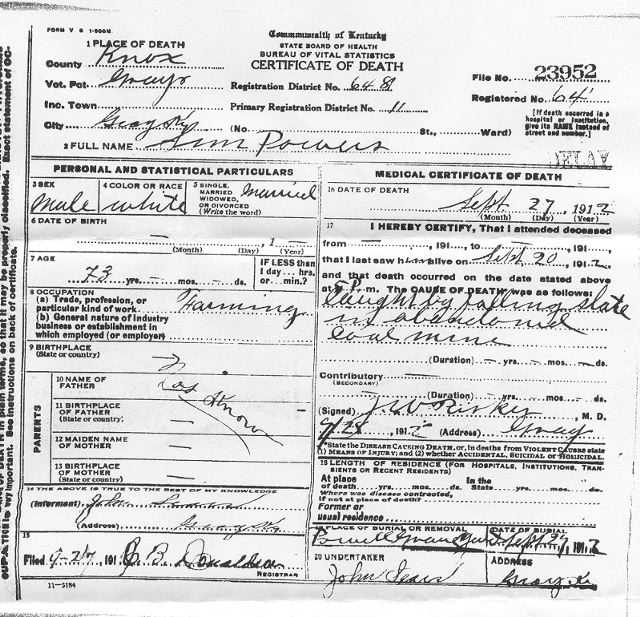 FORM V S 1-500M
Commonwealth of Kentucky
STATE BOARD OF HEALTH
BUREAU OF VITAL STATISTICS
CERTIFICATE OF DEATH
1 PLACE OF DEATH
County Knox
Vot. Pct Grays
Registration District No. 648
File No. 23952
Inc. Town
Primary Registration District No. 11
Registered No. 64
City Gray Ky (No. St., Ward)
[If death occurred in a hospital or institution, give its NAME instead of street and number.]
2 FULL NAME Jim Powers
PERSONAL AND STATISTICAL PARTICULARS
3 SEX Male
4 COLOR OR RACE white
5 SINGLE, MARRIED, WIDOWED, OR DIVORCED (Write the word) Married
6 DATE OF BIRTH
(Month) (Day) (Year)
7 AGE
73 yrs. mos. ds.
IF LESS than 1 day... hrs. or... min.?
8 OCCUPATION
(a) Trade, profession, or particular kind of work. Farming
(b) General nature of industry business or establishment in which employed (or employer)
9 BIRTHPLACE
(State or country)
PARENTS
10 NAME OF FATHER
Know
11 BIRTHPLACE OF FATHER
(State or country)
12 MAIDEN NAME OF MOTHER
13 BIRTHPLACE OF MOTHER
(State or country)
14 THE ABOVE IS TRUE TO THE BEST OF MY KNOWLEDGE
(Informant) John
(Address) Gray Ky
15
Filed 191 B. Donaldson
REGISTRAR
11-5184
MEDICAL CERTIFICATE OF DEATH
16 DATE OF DEATH
Sept 27, 1912
(Month) (Day) (Year)
17 I HEREBY CERTIFY, That I attended deceased
from 191 to 191
that I last saw h alive on Sept 20, 1912
and that death occurred on the date stated above
at 5 P. m. The CAUSE OF DEATH was as follows:
Caught by falling slate
in abandoned
Coal mine
(Duration) yrs. mos. ds.
Contributory
(SECONDARY)
(Duration) yrs. mos. ds.
(Signed) J. W. M. D.
9/28 1912 (Address) Gray
*State the DISEASE CAUSING DEATH, or, in deaths from VIOLENT CAUSES state (1) MEANS OF INJURY; and (2) whether ACCIDENTAL, SUICIDAL or HOMICIDAL.
18 LENGTH OF RESIDENCE (FOR HOSPITALS, INSTITUTIONS, TRANSIENTS OR RECENT RESIDENTS)
At place of death... yrs. mos. ds. In the State... yrs. mos. ds.
Where was disease contracted, if not at place of death?
Former or usual residence
19 PLACE OF BURIAL OR REMOVAL
DATE OF BURIAL
Sept 29, 1912
20 UNDERTAKER
John
ADDRESS
Gray Ky